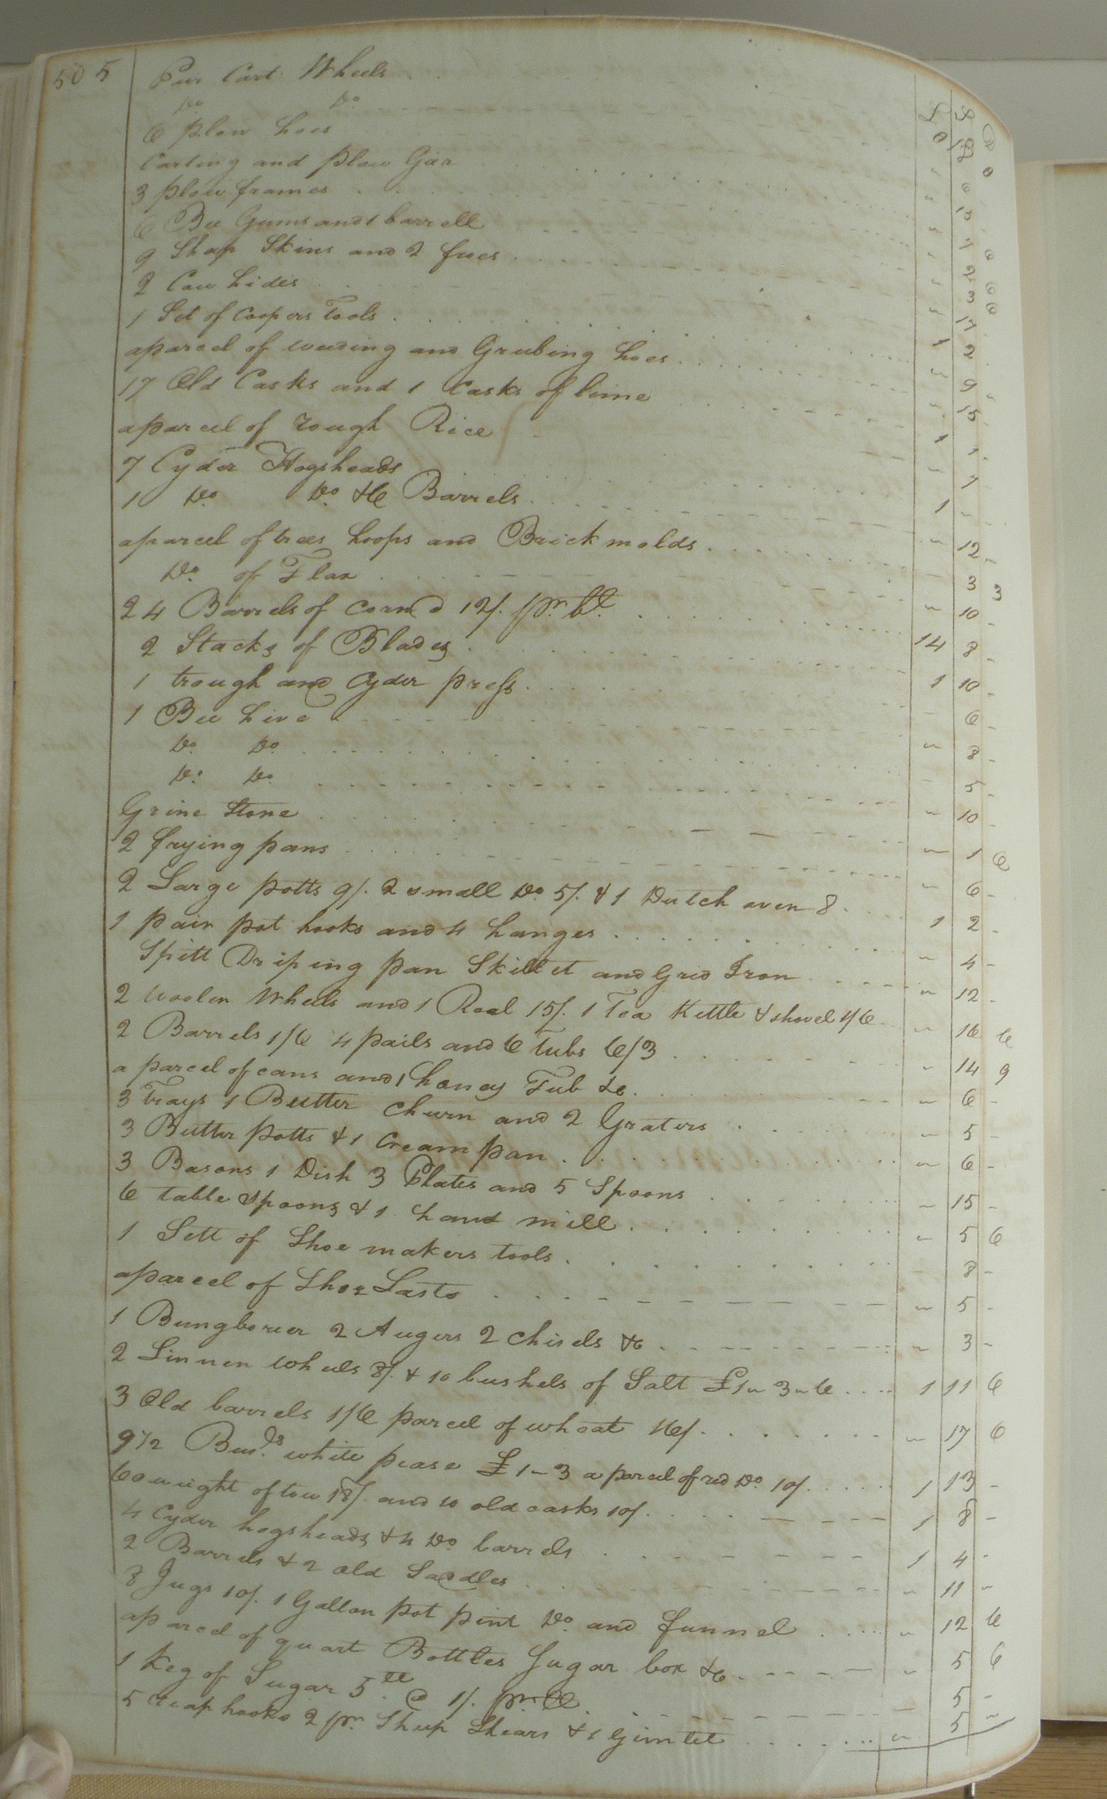 505
Pair Cart Wheels
Do Do
6 plow hoes
Carting and plow Gear
3 plow frames
6 Bee Gums and 1 barrell
9 Shep Skins and 2
2 Cow hides
1 Set of Coopers Tools
aparcel of weeding and Grubing hoes
17 Old Casks and 1 Casks of lime
aparcel of rough Rice
7 Cyder Hogsheads 7
1 Do Do &C Barrels 1 - -
aparcel of trees hoops and Brick molds - 12 -
Do of Flax 3 3
24 Barrels of corn @ 12/. pr. bl. - 10 -
2 Stacks of Blades 14 8 -
1 trough and Cyder press 1 10 -
1 Bee hive - 6 -
Do Do - 8 -
Do Do - 5 -
Grine Stone - 10 -
2 frying pans - 1 6
2 Large potts 9/. 2 small Do 5/. & 1 Dutch oven 8 - 6 -
1 pair pot hooks and 4 hanges 1 2 -
Spitt Driping pan Skillet and Grid Iron - 4 -
2 woolen Wheels and 1 Reel 15/. 1 Tea Kettle & shovel 1/6 - 12 -
2 Barrels 1/6 4 pails and 6 tubs 6/3 - 16 6
a parcel of cans and 1 honey Tub &c. - 14 9
3 Trays 1 Butter Churn and 2 Graters - 6 -
3 Butter potts & 1 Cream pan - 5 -
3 Basons 1 Dish 3 Plates and 5 Spoons - 6 -
6 table spoons & 1 hand mill - 15 -
1 Sett of Shoe makers tools - 5 6
aparcel of Shoe Lasts - 8 -
1 Bungborer 2 Augers 2 Chisels &c - 5 -
2 Linnen wheels 8/. & 10 bushels of Salt £1 - 3 - 6 - 3 -
3 Old barrels 1/6 parcel of wheat 16/. 1 11 6
9 1/2 Bus.ls white pease £1 - 3 a parcel of red Do 10/. - 17 6
60 weight of tow 18/. and 10 old casks 10/. 1 13 -
4 Cyder hogsheads & 4 Do barrels 1 8 -
2 Barrels & 2 old Saddles 1 4 -
8 Jugs 10/. 1 Gallon pot pint Do and funnel - 11 -
aparcel of quart Bottles Sugar box &c - 12 6
1 Keg of Sugar 5 @ 1/. pr - 5 6
5 reaphooks 2 pr. Sheep Shears & 1 Gimlet - 5 -
5 -